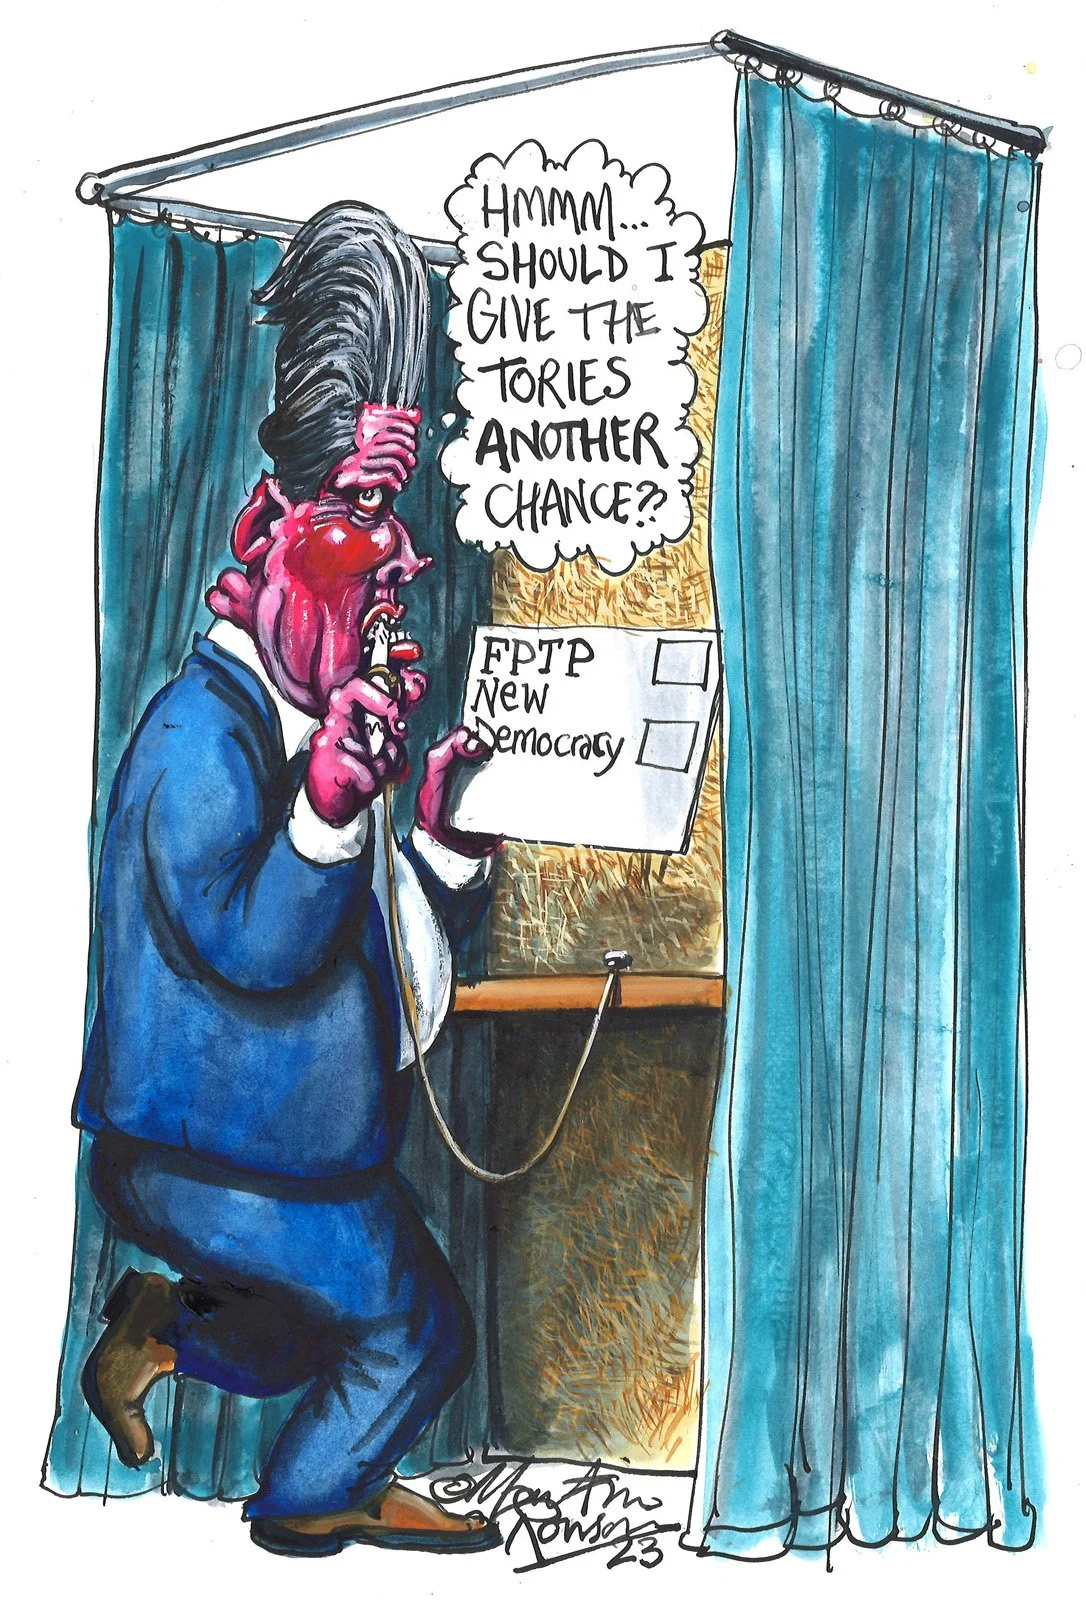 HMMM...
SHOULD I
GIVE THE
TORIES
ANOTHER
CHANCE??
FPTP
NEW
Democracy
© Martin
Rowson
23